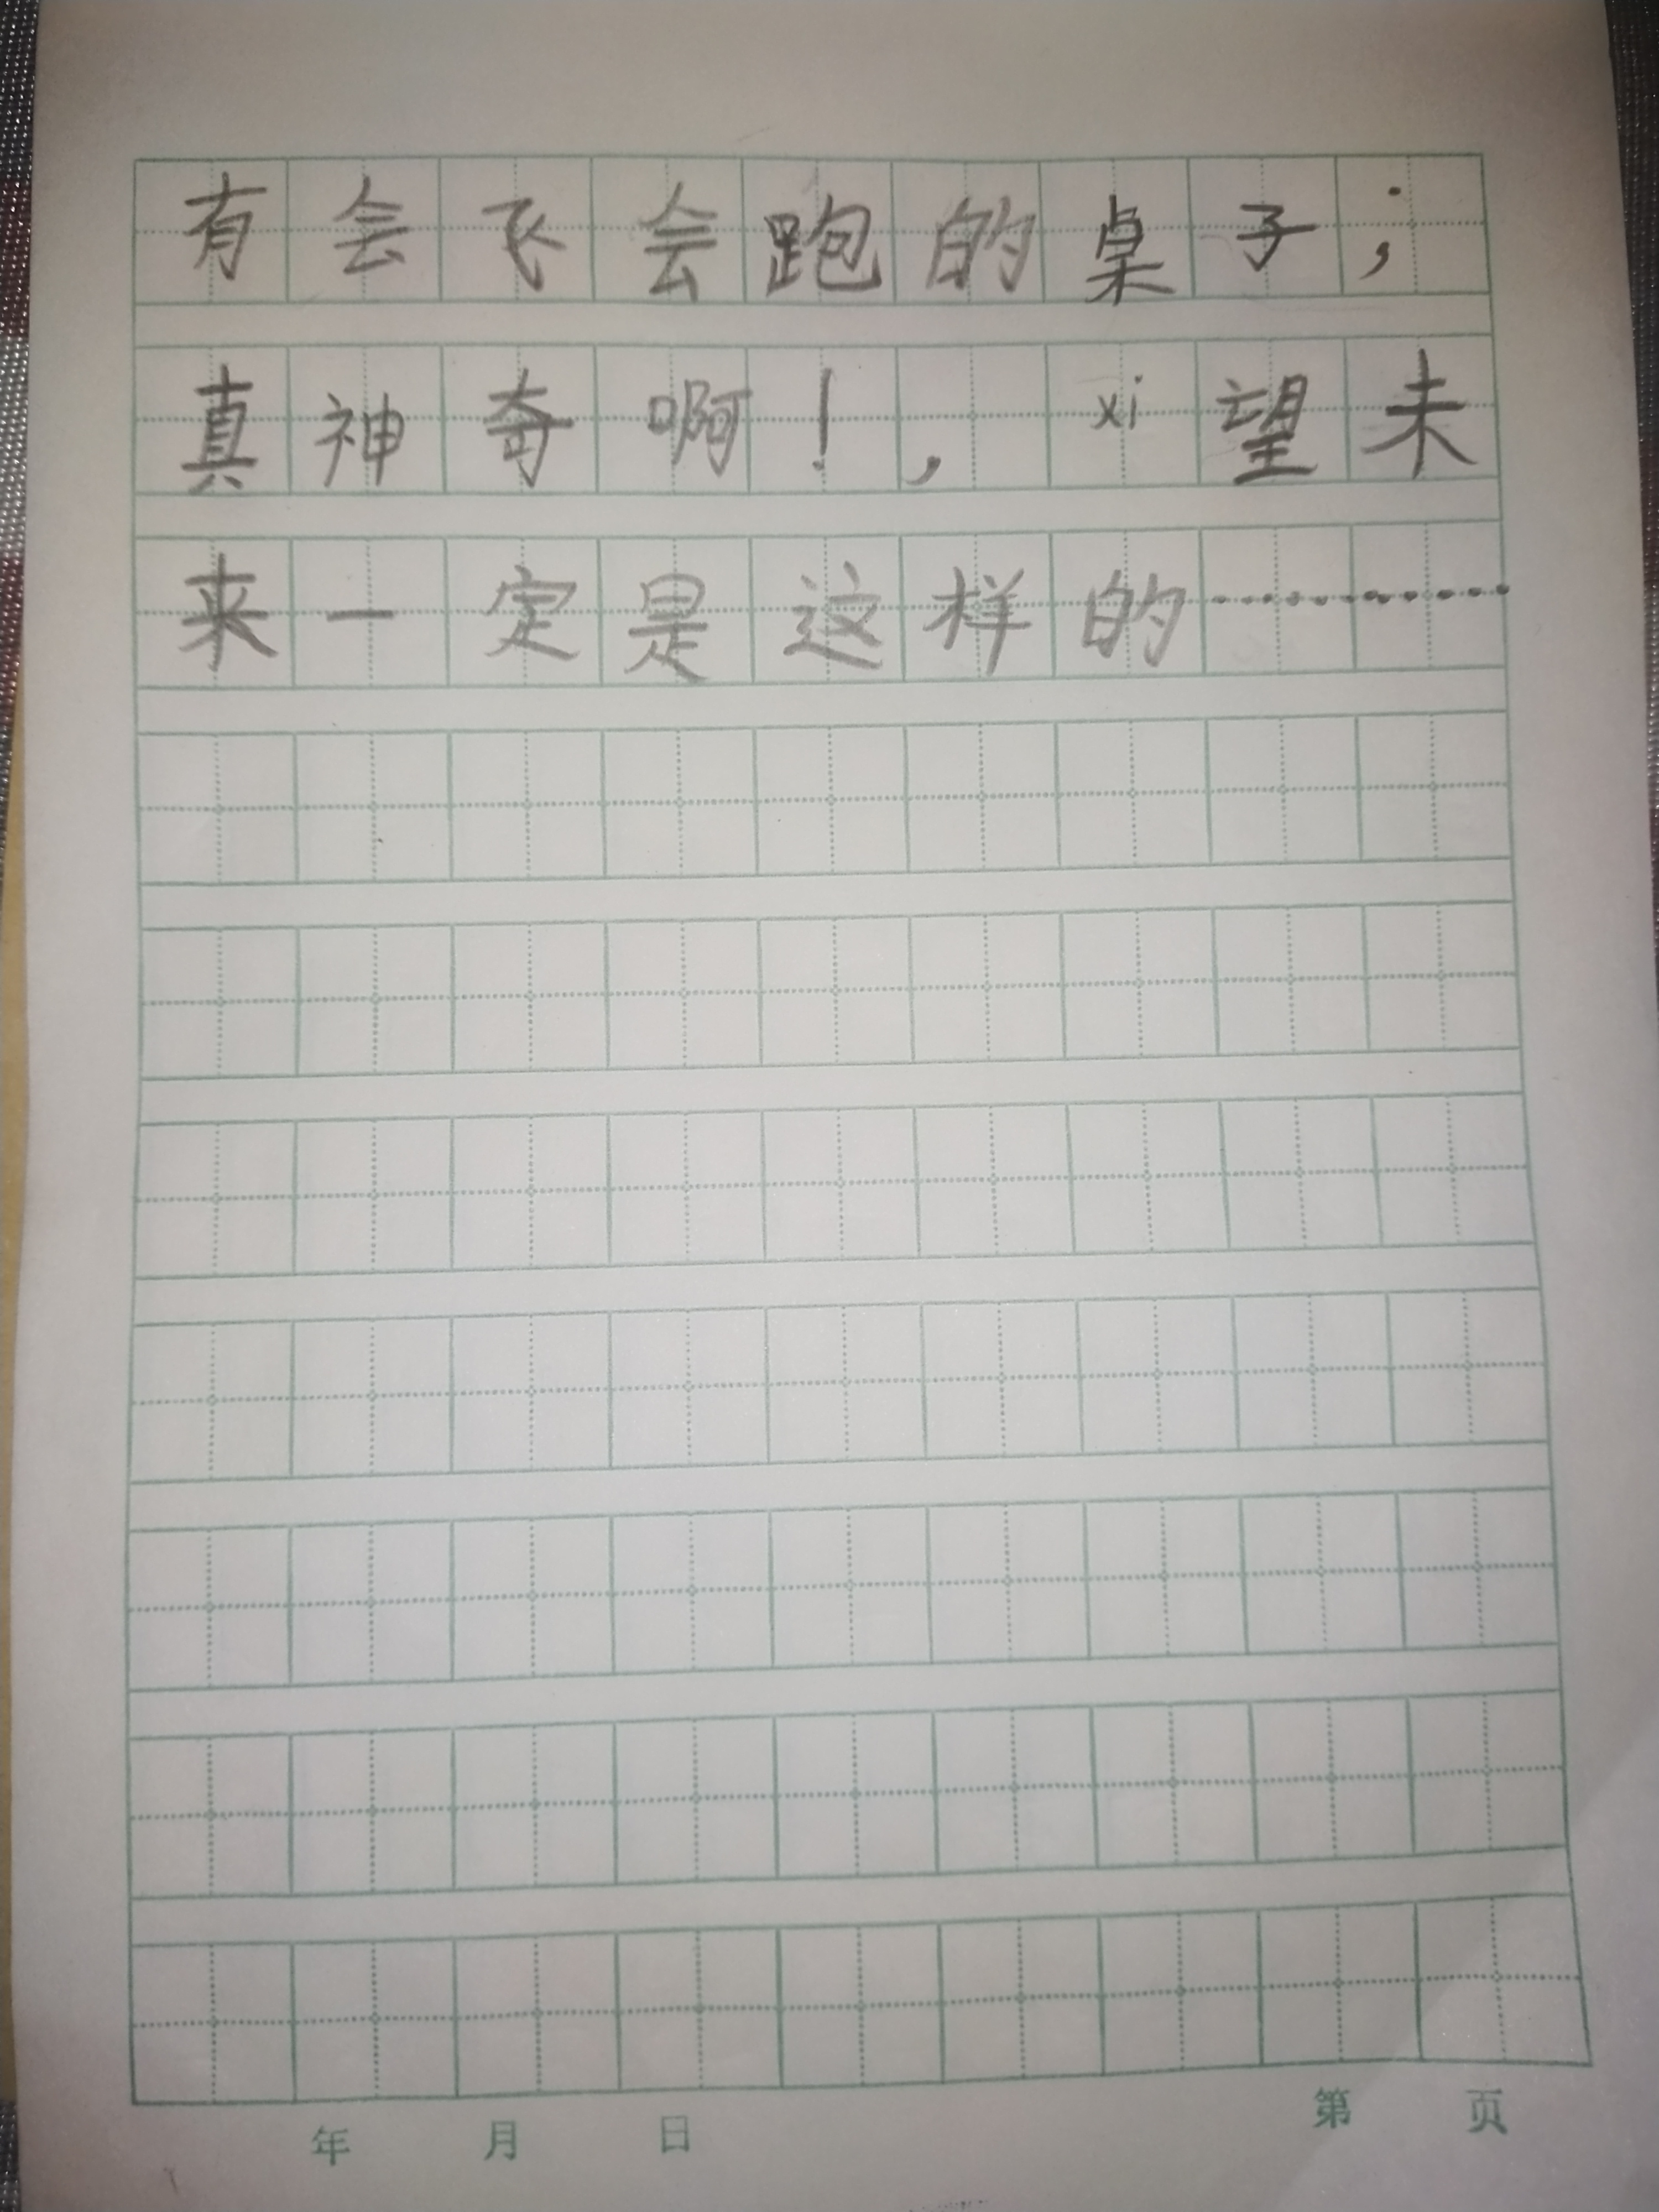 有会飞会跑的桌子；
真神奇啊！，xi望未
来一定是这样的…………
年 月 日 第 页